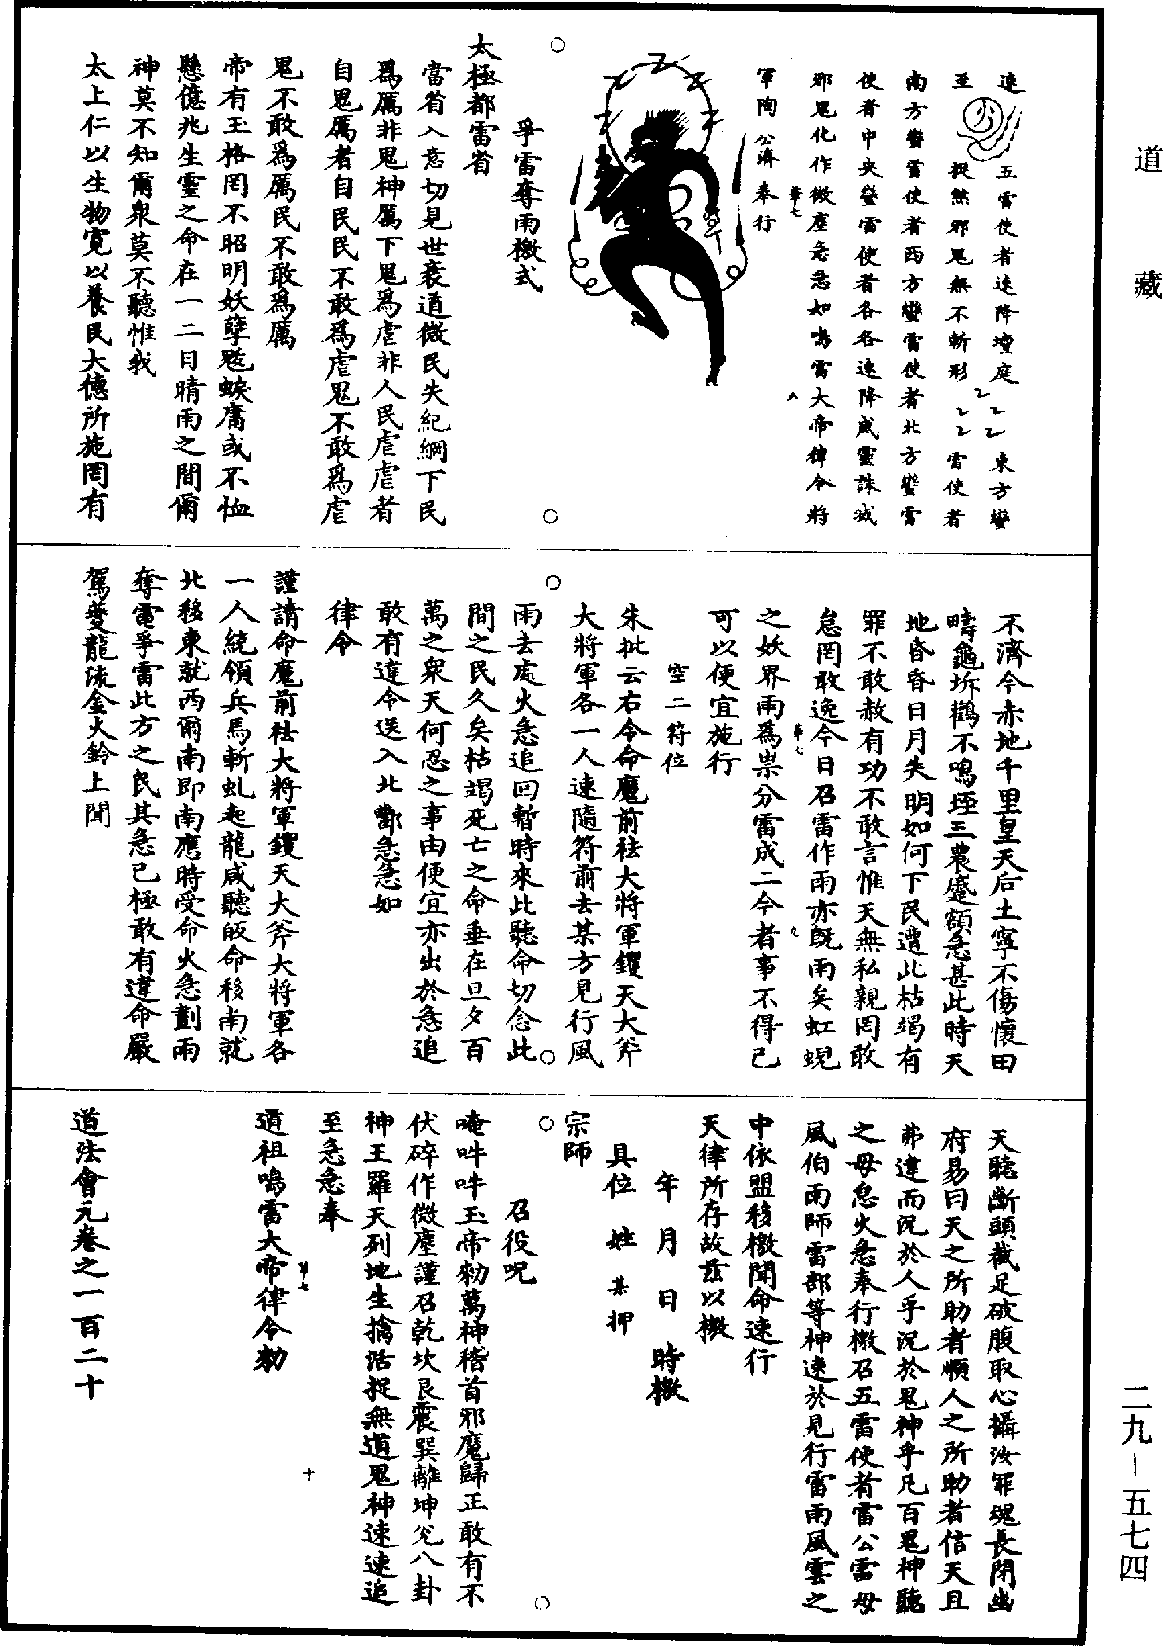 道藏
速　五雷使者速降壇庭　東方蠻
至　捉煞邪鬼無不斬形　雷使者
南方蠻雷使者西方蠻雷使者北方蠻雷
使者中央蠻雷使者各各速降威靈誅滅
邪鬼化作微塵急急如鳴雷大帝律令將
軍陶公濟奉行
孚雷奪雨檄式
太極都雷省
當省入意切見世衰道微民失紀綱下民
爲厲非鬼神厲下鬼爲虐非人民虐虐者
自鬼厲者自民民不敢爲虐鬼不敢爲虐
鬼不敢爲厲民不敢爲厲
帝有玉格罔不昭明妖孽魃蜧膚或不恤
懸億兆生靈之命在一二日晴雨之間爾
神莫不知爾衆莫不聽惟我
太上仁以生物寬以養民大德所施罔有
不濟今赤地千里皇天后土寧不傷懷田
疇龜坼鸛不鳴垤三農蹙額急甚此時天
地昏昏日月失明如何下民遭此枯竭有
罪不敢赦有功不敢言惟天無私親罔敢
怠罔敢逸今日召雷作雨亦既雨矣虹蜺
之妖界雨爲祟分雷成二今者事不得已
可以便宜施行
空二符位
朱批云右令命魔前祛大將軍钁天大斧
大將軍各一人速隨符前去某方見行風
雨去處火急追回暫時來此聽命切念此
間之民久矣枯竭死亡之命垂在旦夕百
萬之衆天何忍之事由便宜亦出於急追
敢有違令送入北酆急急如
律令
謹請命魔前祛大將軍钁天大斧大將軍各
一人統領兵馬斬虬起龍咸聽皈命移南就
北移東就西爾南即南應時受命火急劃雨
奪電孚雷此方之民其急已極敢有違命嚴
駕夔龍流金火鈴上聞
天聽斷頭截足破腹取心攝汝罪魂長閉幽
府易曰天之所助者順人之所助者信天且
弗違而況於人乎況於鬼神乎凡百鬼神聽
之毋怠火急奉行檄召五雷使者雷公雷母
風伯雨師雷部等神速於見行雷雨風雲之
中依盟移檄聞命速行
天律所存故茲以檄
年　月　日　時檄
具位　姓　某　押
宗師
召役呪
唵吽吽玉帝勑萬神稽首邪魔歸正敢有不
伏碎作微塵謹召乾坎艮震巽離坤兊八卦
神王羅天列地生擒活捉無道鬼神速速追
至急急奉
道祖鳴雷大帝律令勑
道法會元卷之一百二十
二九－五七四